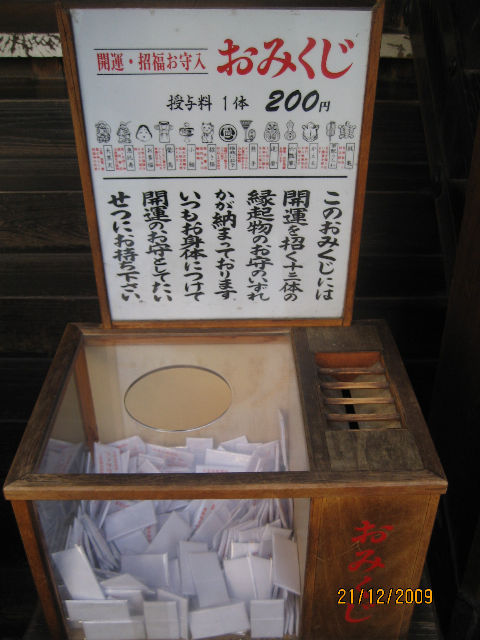 開運・招福お守入
おみくじ
授与料 1体 200円
このおみくじには
開運を招く十二体の
縁起物のお守のいずれ
かが納まっております
いつもお身体につけて
開運のお守としてたい
せつにお持ち下さい。
おみくじ
21/12/2009